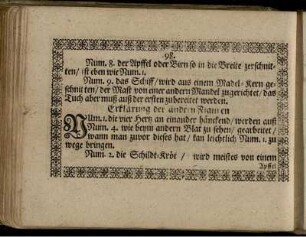 98.
Num. 8. der Apffel oder Birn so in die Breite zerschnit-
ten/ ist eben wie Num. 1.
Num. 9. das Schiff/ wird aus einem Mandel-Kern ge-
schnitten/ der Mast von einer andern Mandel zugerichtet/ das
Tuch aber muß auß der ersten zubereitet werden.
Erklärung der andern Figuren
NUm. 1. die vier Hertz an einander hänckend/ werden auß
Num. 4. wie beym andern Blat zu sehen/ gearbeitet/
wann man zuvor dieses hat/ kan leichtlich Num. 1. zu
wege bringen.
Num. 2. die Schildt-Kröt/ wird meistes von einem
Apffel